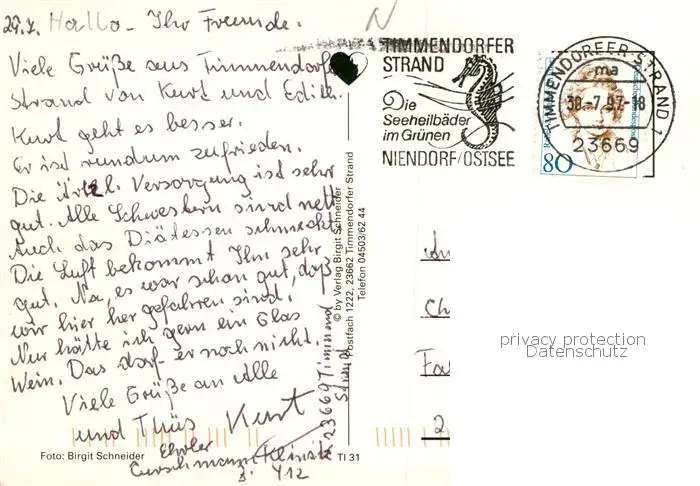 29.7. Hallo - Ihr Freunde.
Viele Grüße aus Timmendorfer
Strand von Kurt und Edith.
Kurt geht es besser.
Er ist rundum zufrieden.
Die Ärztl. Versorgung ist sehr
gut. Alle Schwestern sind nett
Auch das Diätessen schmeckt.
Die Luft bekommt Ihm sehr
gut. Na, es war schon gut, daß
wir hier her gefahren sind.
Nur hätte ich gern ein Glas
Wein. Das darf er noch nicht.
Viele Grüße an Alle
und Tschüs Kurt
Curschmann Klinik
Z. 412
23669 Timmend
Strand
Foto: Birgit Schneider
TI 31
© by Verlag Birgit Schneider
Postfach 1222, 23662 Timmendorfer Strand
Telefon 04503/62 44
TIMMENDORFER
STRAND
Die
Seeheilbäder
im Grünen
NIENDORF/OSTSEE
TIMMENDORFER STRAND 1
ma
30.-7.97-18
23669
80
An
Ch
Fa
2
privacy protection
Datenschutz